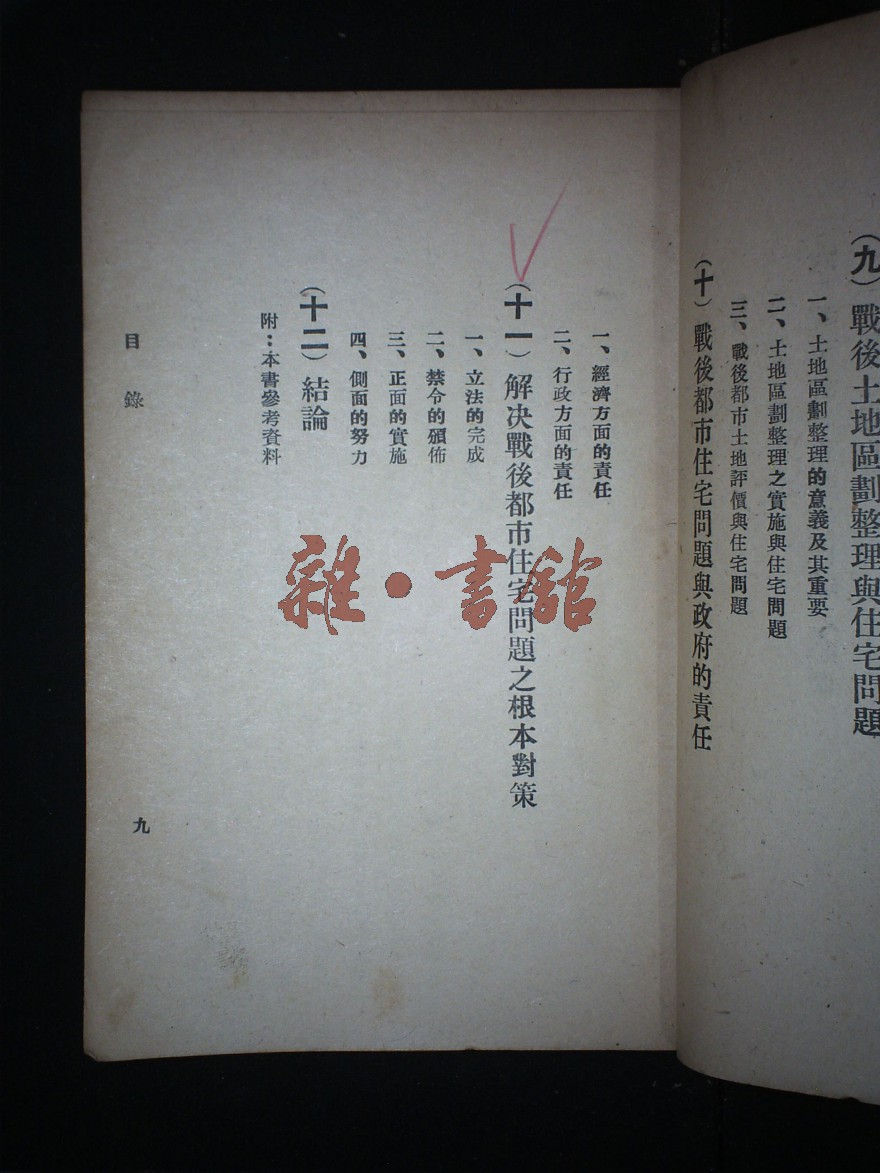 （九）戰後土地區劃整理與住宅問題
一、土地區劃整理的意義及其重要
二、土地區劃整理之實施與住宅問題
三、戰後都市土地評價與住宅問題
（十）戰後都市住宅問題與政府的責任
一、經濟方面的責任
二、行政方面的責任
（十一）解決戰後都市住宅問題之根本對策
一、立法的完成
二、禁令的頒佈
三、正面的實施
四、側面的努力
（十二）結論
附：本書參考資料
目錄
九
雜·書館